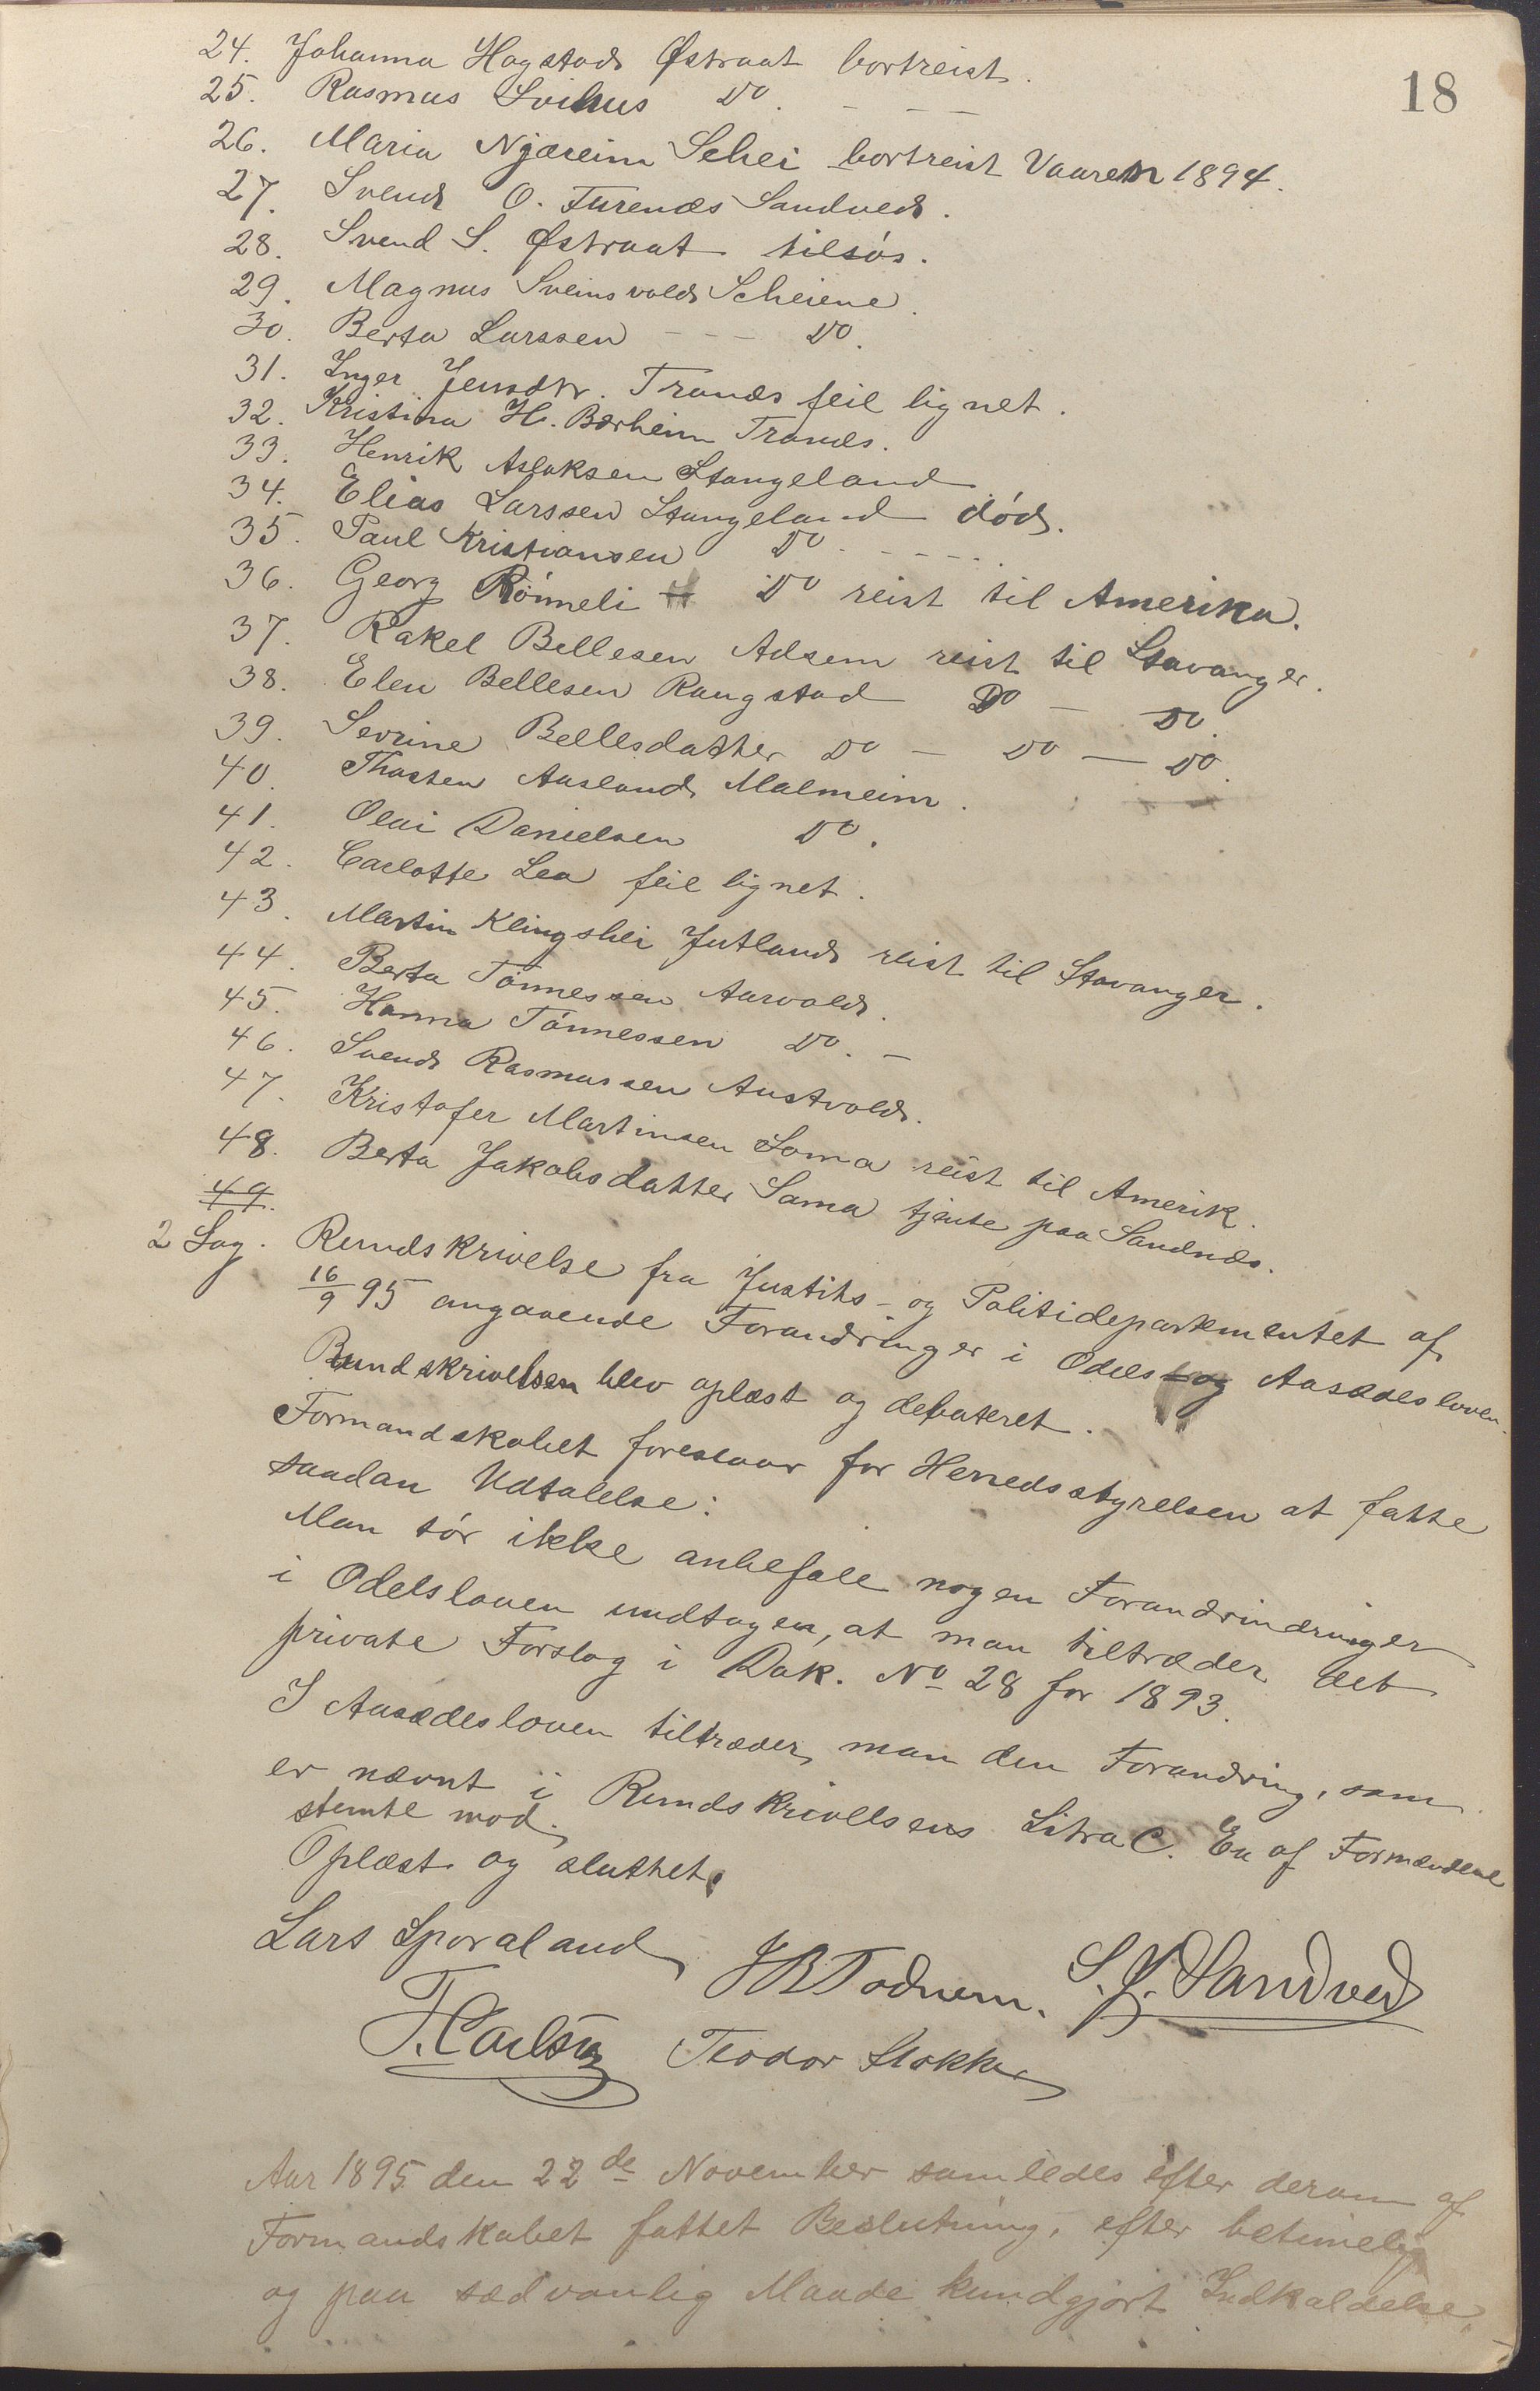 18
24. Johanna Hogstad Østraat bortreist.
25. Rasmus Svihus Do. - - -
26. Maria Njæreim Schei bortreist Vaaren 1894.
27. Svend O. Furenes Sandved.
28. Svend S. Østraat tilsøs.
29. Magnus Sveinsvold Scheiene.
30. Berta Larssen - - - Do.
31. Inger Jensdtr. Tranes feil lignet.
32. Kristina H. Bærheim Tranes.
33. Henrik Aslaksen Stangeland
34. Elias Larssen Stangeland død.
35. Paul Kristiansen Do. - - - - -
36. Georg Rømneli Do reist til Amerika.
37. Rakel Bellesen Adsem reist til Stavanger.
38. Elen Bellesen Raugstad Do - Do.
39. Sevrine Bellesdatter Do - Do - Do.
40. Thosten Aasland Malmeim.
41. Olai Danielsen Do.
42. Carlotte Lea feil lignet.
43. Martin Klingshei Jutland reist til Stavanger.
44. Berta Tønnessen Aarvold.
45. Hanna Tønnessen Do. -
46. Svend Rasmussen Austvold.
47. Kristofer Martinsen Soma reist til Amerik.
48. Berta Jakobsdatter Soma tjente paa Sandnæs.
49.
2 Sag. Rundskrivelse fra Justits- og Politidepartementet af
16/9 95 angaaende Forandringer i Odels- og Aasædesloven.
Rundskrivelsen blev oplæst og debateret.
Formandskabet foreslaar for Herredsstyrelsen at fatte
saadan Udtalelse:
Man tør ikke anbefale nogen Forandrindringer
i Odelsloven undtagen, at man tiltræder det
private Forslag i Dok. No 28 for 1893.
I Aasædesloven tiltræder man den Forandring, som
er nævnt i Rundskrivelsens Litra C. En af Formændene
stemte mod.
Oplæst og sluttet.
Lars Sporaland JB Todnem. S. J. Sandved
T. Carlsen Teodor Stokka
Aar 1895 den 22de November samledes efter derom af
Formandskabet fattet Beslutning, efter betimelig
og paa sædvanlig Maade kundgjort Indkaldelse,